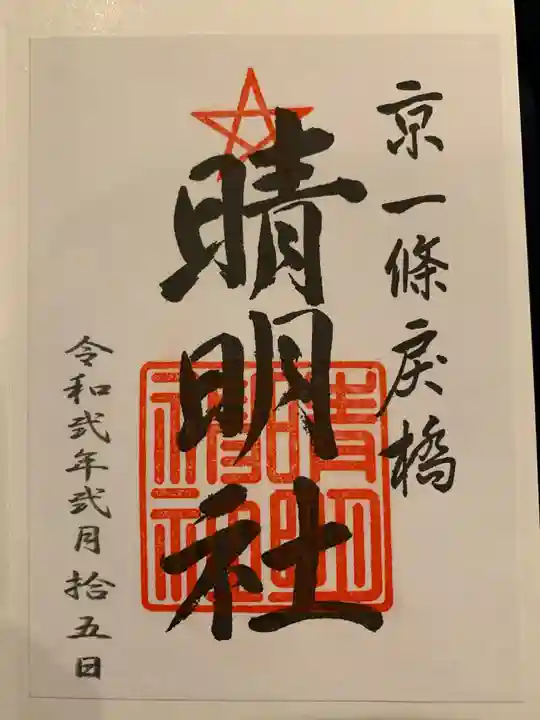 京一條戻橋
晴明社
晴明神社
令和弐年弐月拾五日